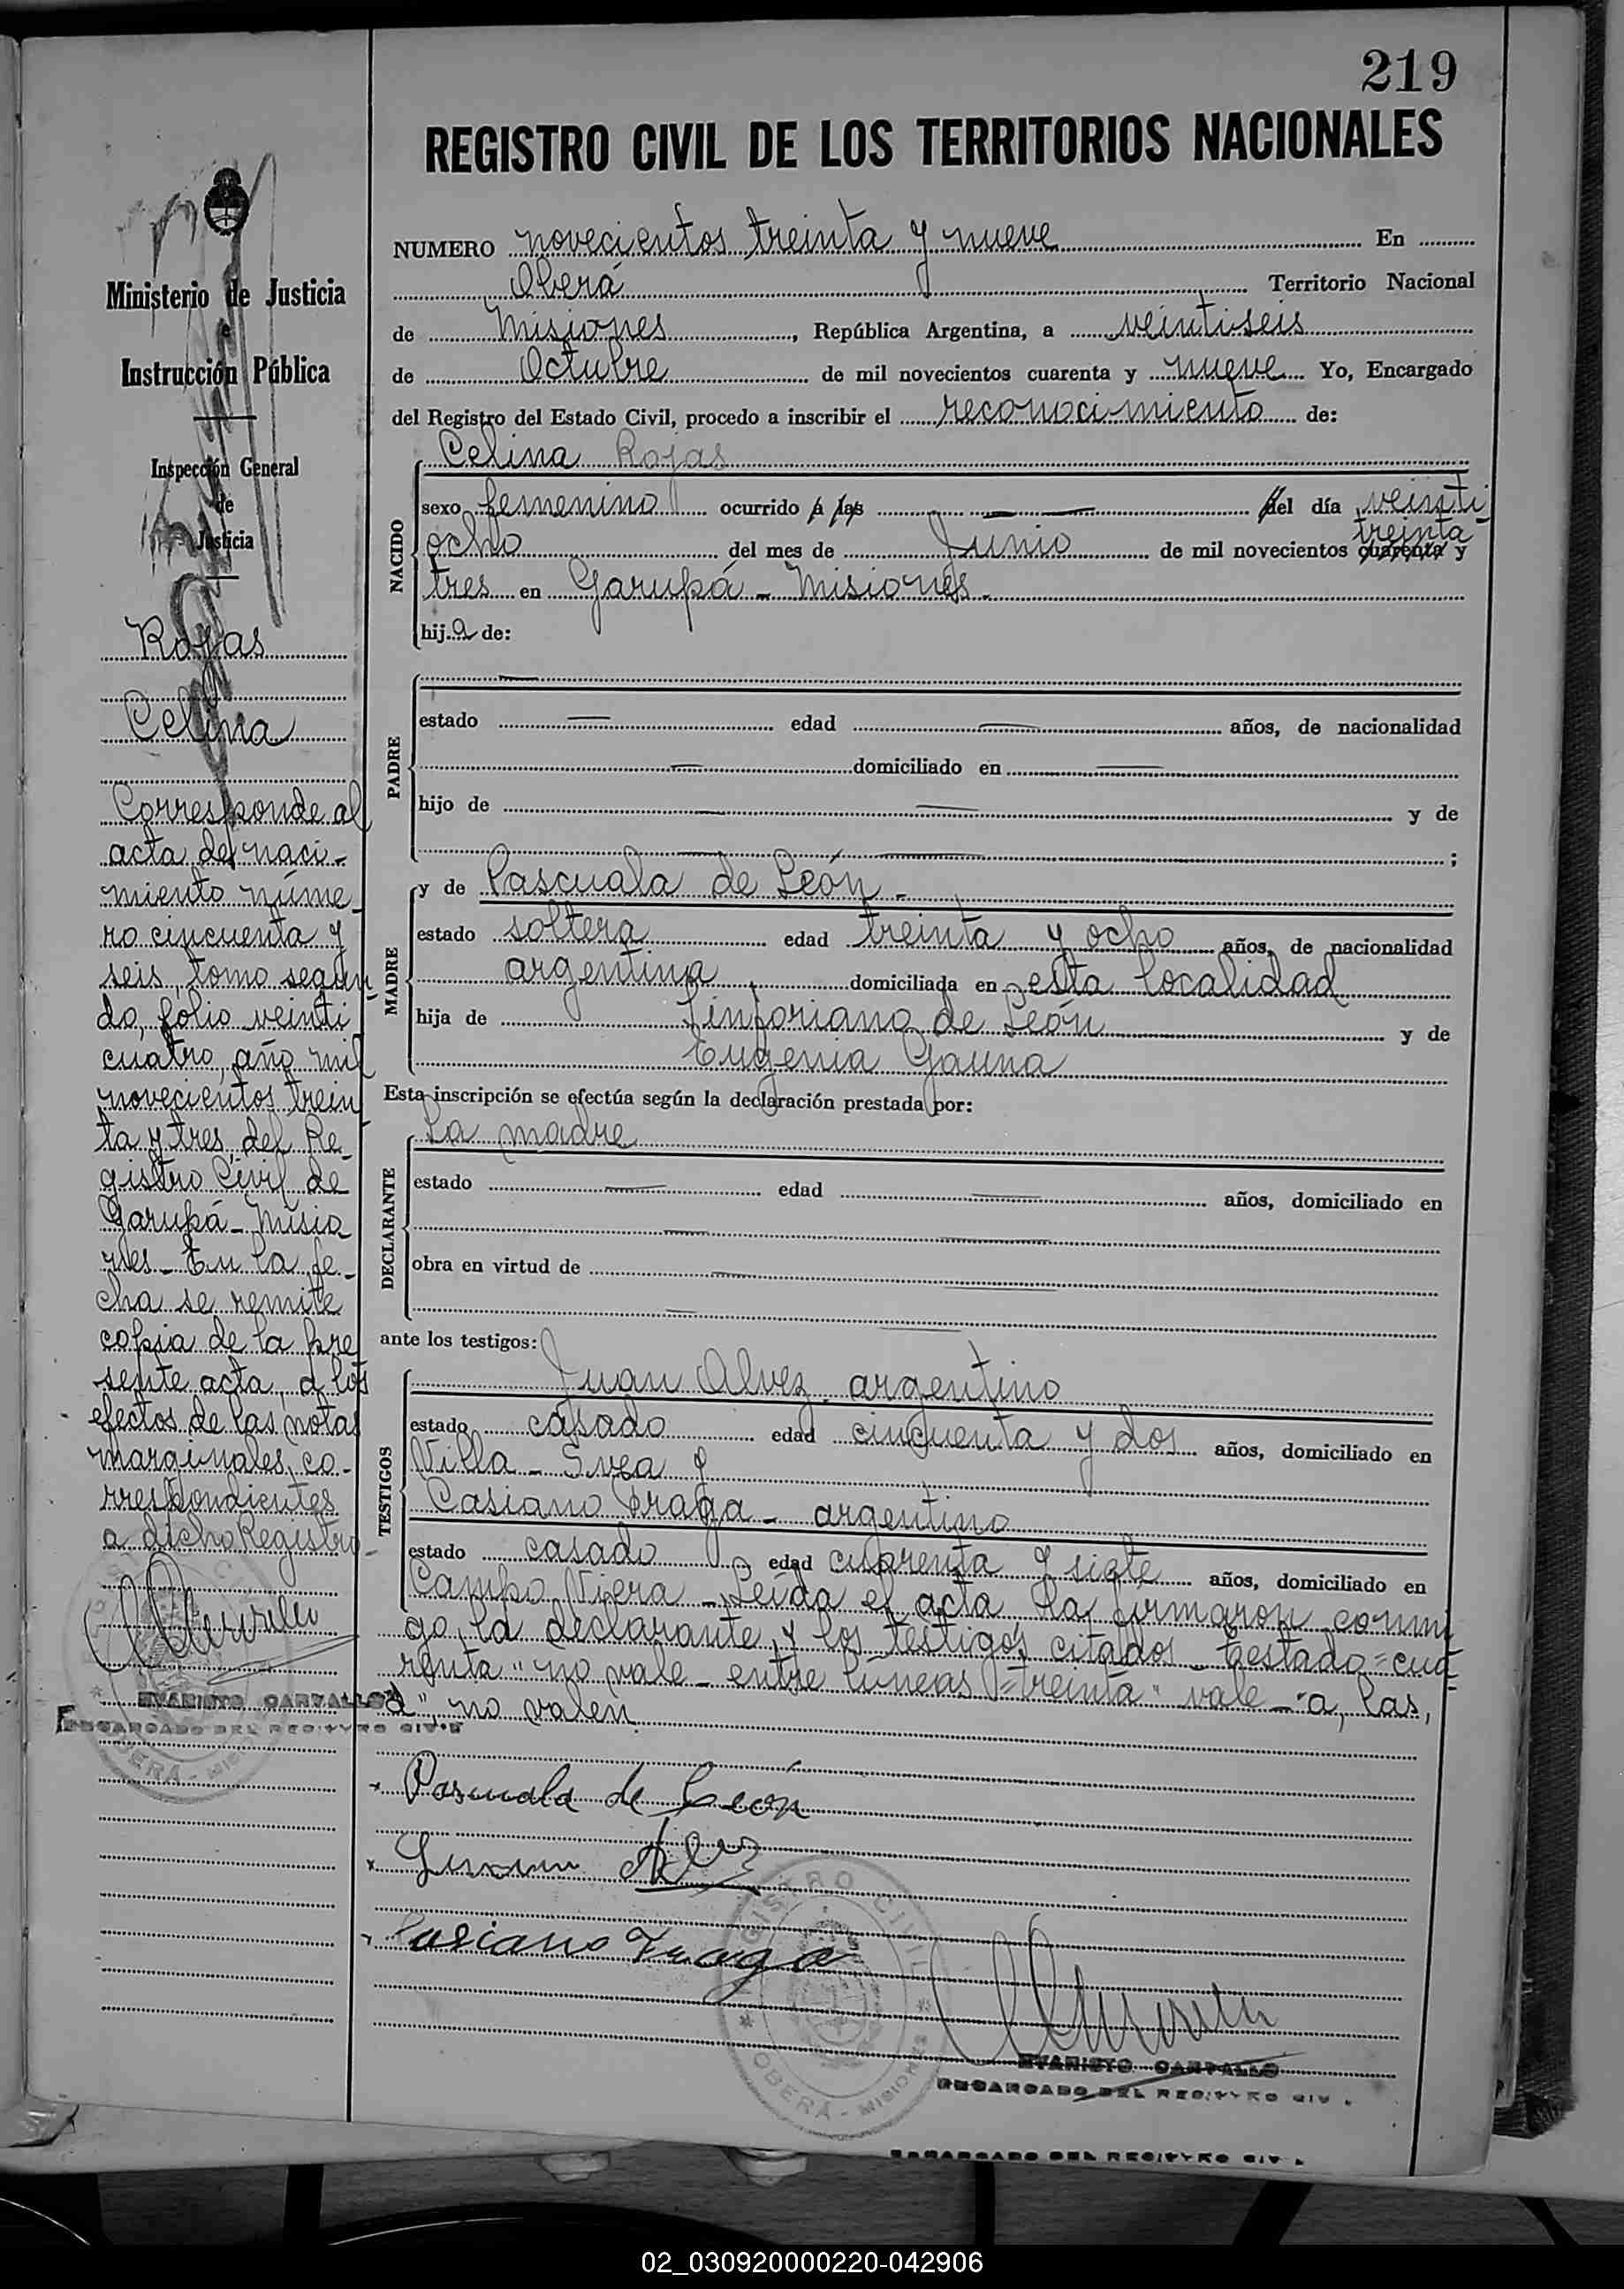 219
REGISTRO CIVIL DE LOS TERRITORIOS NACIONALES
Ministerio de Justicia
e
Instrucción Pública
Inspección General
de
Justicia
Rojas
Celina
Corresponde al
acta de naci-
miento núme-
ro cincuenta y
seis, tomo segun-
do, folio veinti
cuatro, año mil
novecientos trein
ta y tres, del Re-
gistro Civil de
Garupá - Misio
nes - En la fe-
cha se remite
copia de la pre
sente acta, a los
efectos de las notas
marginales co-
rrespondientes
a dicho Registro -
EVARISTO CARVALLO
ENCARGADO DEL REGISTRO CIVIL
NUMERO novecientos treinta y nueve En
Oberá Territorio Nacional
de Misiones, República Argentina, a veintiseis
de Octubre de mil novecientos cuarenta y nueve Yo, Encargado
del Registro del Estado Civil, procedo a inscribir el reconocimiento de:
NACIDO
Celina Rojas
sexo femenino ocurrido a las — — del día veinti
treinta
ocho del mes de Junio de mil novecientos cuarenta y
tres en Garupá - Misiones -
hija de:
PADRE
estado — edad — años, de nacionalidad
— domiciliado en —
hijo de — — y de
— — ;
MADRE
y de Pascuala de León -
estado soltera edad treinta y ocho años, de nacionalidad
argentina domiciliada en esta localidad
hija de Sinforiano de León y de
Eugenia Gauna
Esta inscripción se efectúa según la declaración prestada por:
DECLARANTE
La madre
estado — edad — años, domiciliado en
— —
obra en virtud de — —
— —
ante los testigos:
TESTIGOS
Juan Alvez argentino
estado casado edad cincuenta y dos años, domiciliado en
Villa - Svea y
Casiano Fraga - argentino
estado casado edad cuarenta y siete años, domiciliado en
Campo Viera - Leída el acta la firmaron conmi
go, la declarante y los testigos citados - testado = cua-
renta" no vale - entre líneas = treinta" vale - "a, las,
d", no valen
Pascuala de León
Casiano Fraga
REGISTRO CIVIL
OBERÁ - MISIONES
EVARISTO CARVALLO
ENCARGADO DEL REGISTRO CIV.
ENCARGADO DEL REGISTRO CIV.
02_030920000220-042906